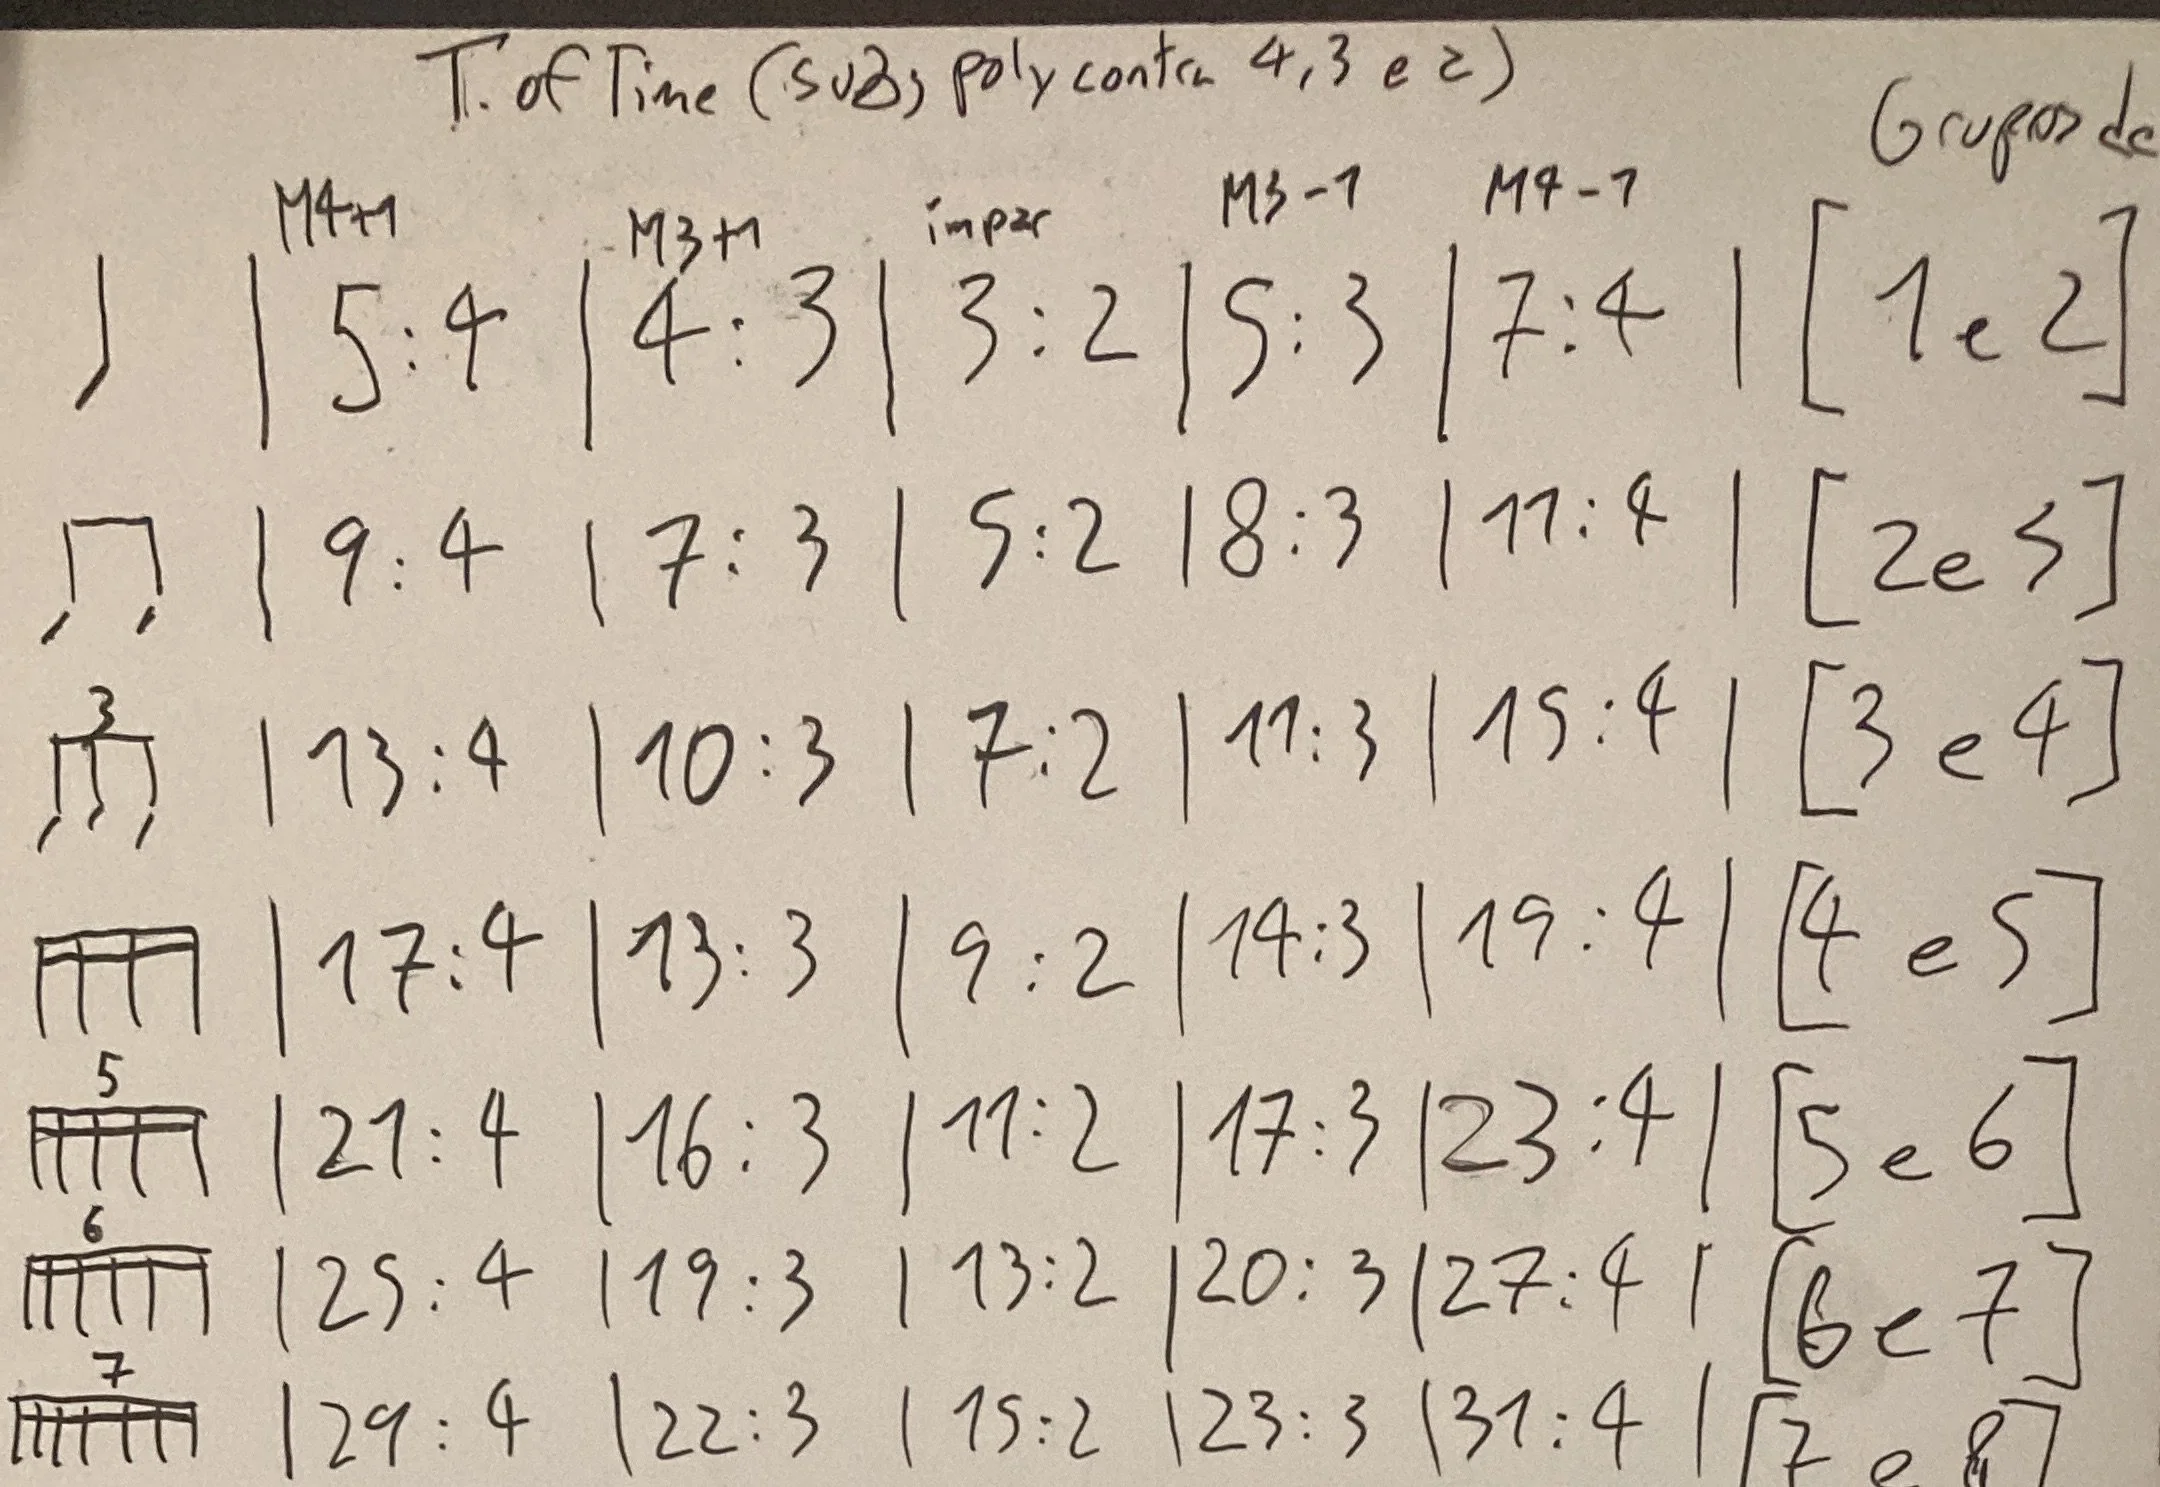 T. of Time (sub, poly contra 4, 3 e 2)
Grupos de
M4+1 M3+1 impar M3-1 M4-1
| 5:4 | 4:3 | 3:2 | 5:3 | 7:4 | [1 e 2]
| 9:4 | 7:3 | 5:2 | 8:3 | 11:4 | [2 e 3]
3
| 13:4 | 10:3 | 7:2 | 11:3 | 15:4 | [3 e 4]
| 17:4 | 13:3 | 9:2 | 14:3 | 19:4 | [4 e 5]
5
| 21:4 | 16:3 | 11:2 | 17:3 | 23:4 | [5 e 6]
6
| 25:4 | 19:3 | 13:2 | 20:3 | 27:4 | [6 e 7]
7
| 29:4 | 22:3 | 15:2 | 23:3 | 31:4 | [7 e 8]